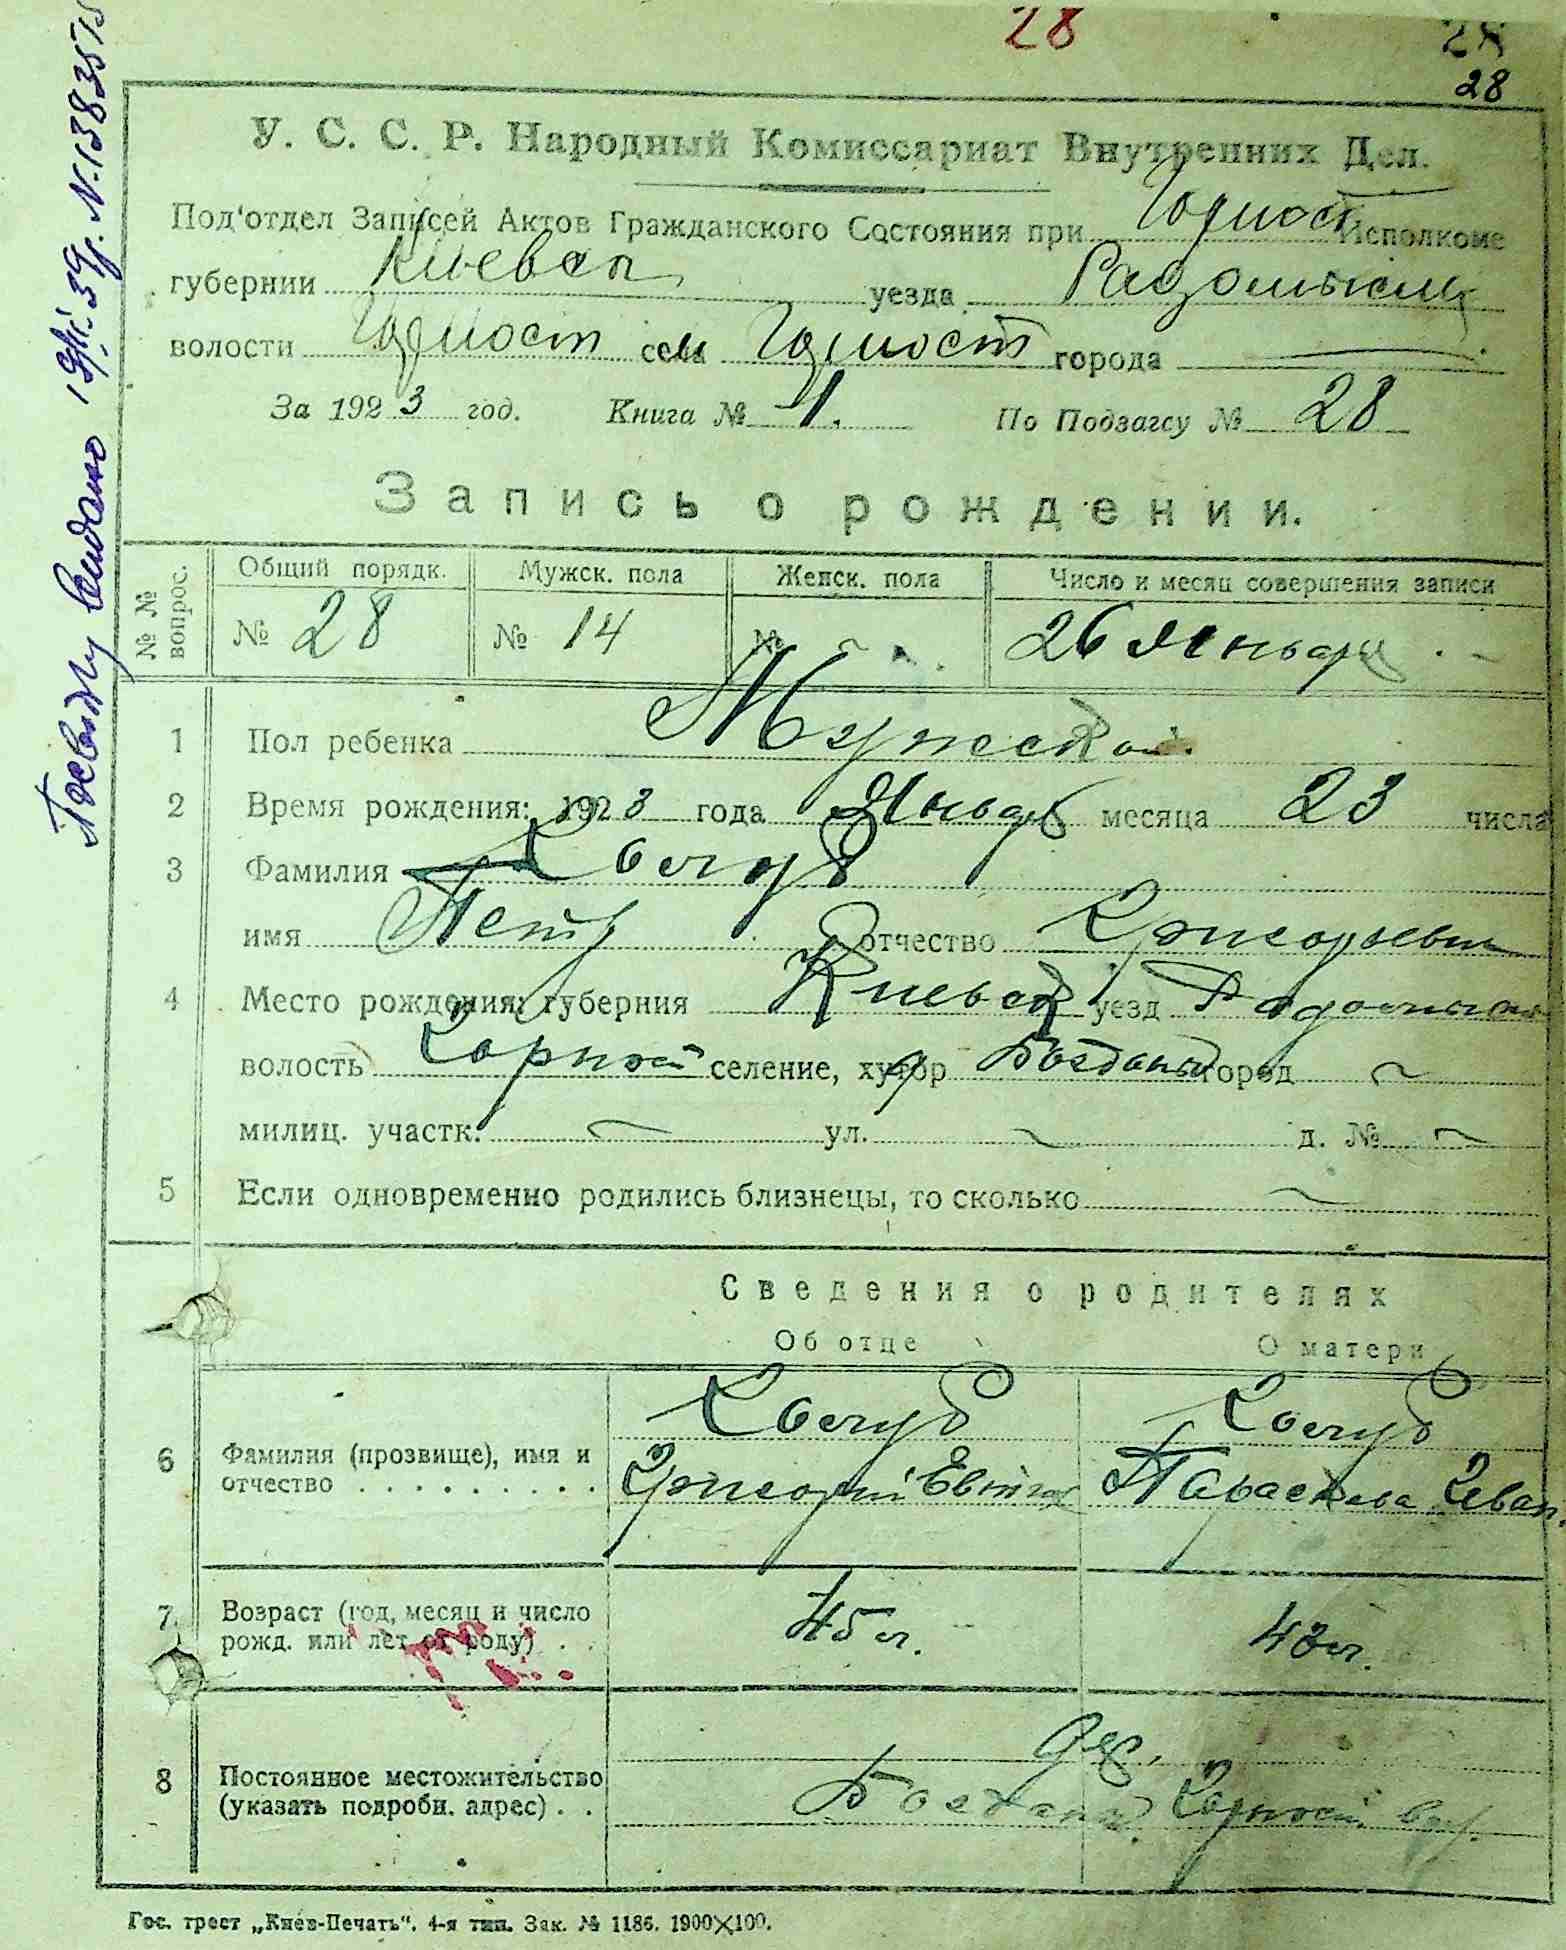 28
28
28
У. С. С. Р. Народный Комиссариат Внутренних Дел.
Под'отдел Записей Актов Гражданского Состояния при Исполкоме
губернии Киевск уезда
волости села города
За 1923 год. Книга № 1. По Подзагсу № 28
Запись о рождении.
№ № вопрос.
Общий порядк. Мужск. пола Женск. пола Число и месяц совершения записи
№ 28 № 14 № 26 Января
1 Пол ребенка Мужской.
2 Время рождения: 1923 года Январь месяца 23 числа
3 Фамилия
имя Петр отчество Григорьевич
4 Место рождения: губерния Киевск уезд Радомысл
волость селение, хутор город
милиц. участк. ул. д. №
5 Если одновременно родились близнецы, то сколько
Сведения о родителях
Об отце О матери
6 Фамилия (прозвище), имя и
отчество
Григорий Параскева Иван.
7 Возраст (год, месяц и число
рожд. или лет от роду)
45 л. 43 л.
8 Постоянное местожительство
(указать подробн. адрес)
дер.
Гос. трест „Киев-Печать“. 4-я тип. Зак. № 1186. 1900×100.